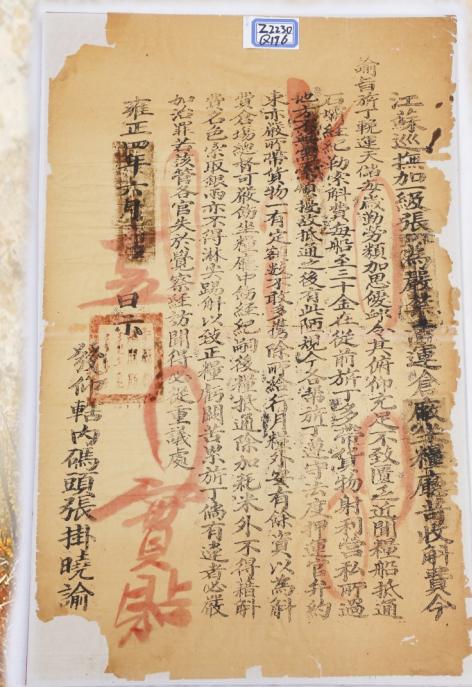 Z2230
Q196
江蘇巡撫加一級張 為嚴禁 運倉廠坐糧廳書收斛費
諭旨旂丁輓運天儲每歲勤勞頻加恩俊 俯仰充足不致匱乏近聞糧船抵通
石壩經紀勒索斛費每船至三十金在從前旂丁多帶貨物射利營私所過
地方 擾故抵通之後有此陋規今各幫旂丁遵守法度押運官弁約
束亦嚴所帶貨物一有定額數不敢多攜除應給行月糧外安有餘資以為斛
費倉場總督可嚴飭坐糧廳中飭經紀嗣後糧抵通除加耗米外不得藉斛
費名色索取銀兩亦不得淋尖踢斛以致正糧虧闕苦累旂丁倘有違者必嚴
加治罪若該管各官失於覺察經訪聞得 從重議處
雍正四年六月 日示
發仰轄內碼頭張掛曉諭
實貼